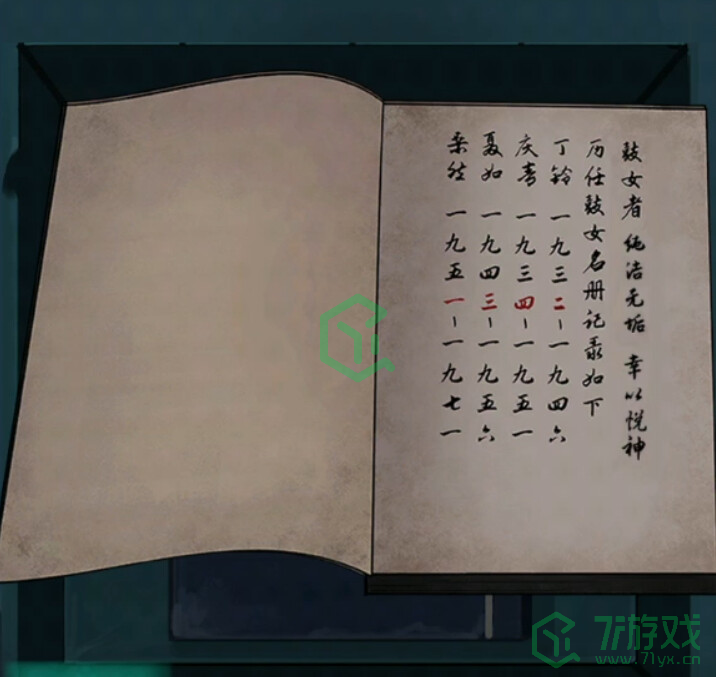 鼓女者 纯洁无垢 幸以悦神
历任鼓女名册记录如下
丁铃 一九三二-一九四六
庆青 一九三四-一九五一
聂如 一九四三-一九五六
桑然 一九五一-一九七一
7r游戏
www.71yx.cn